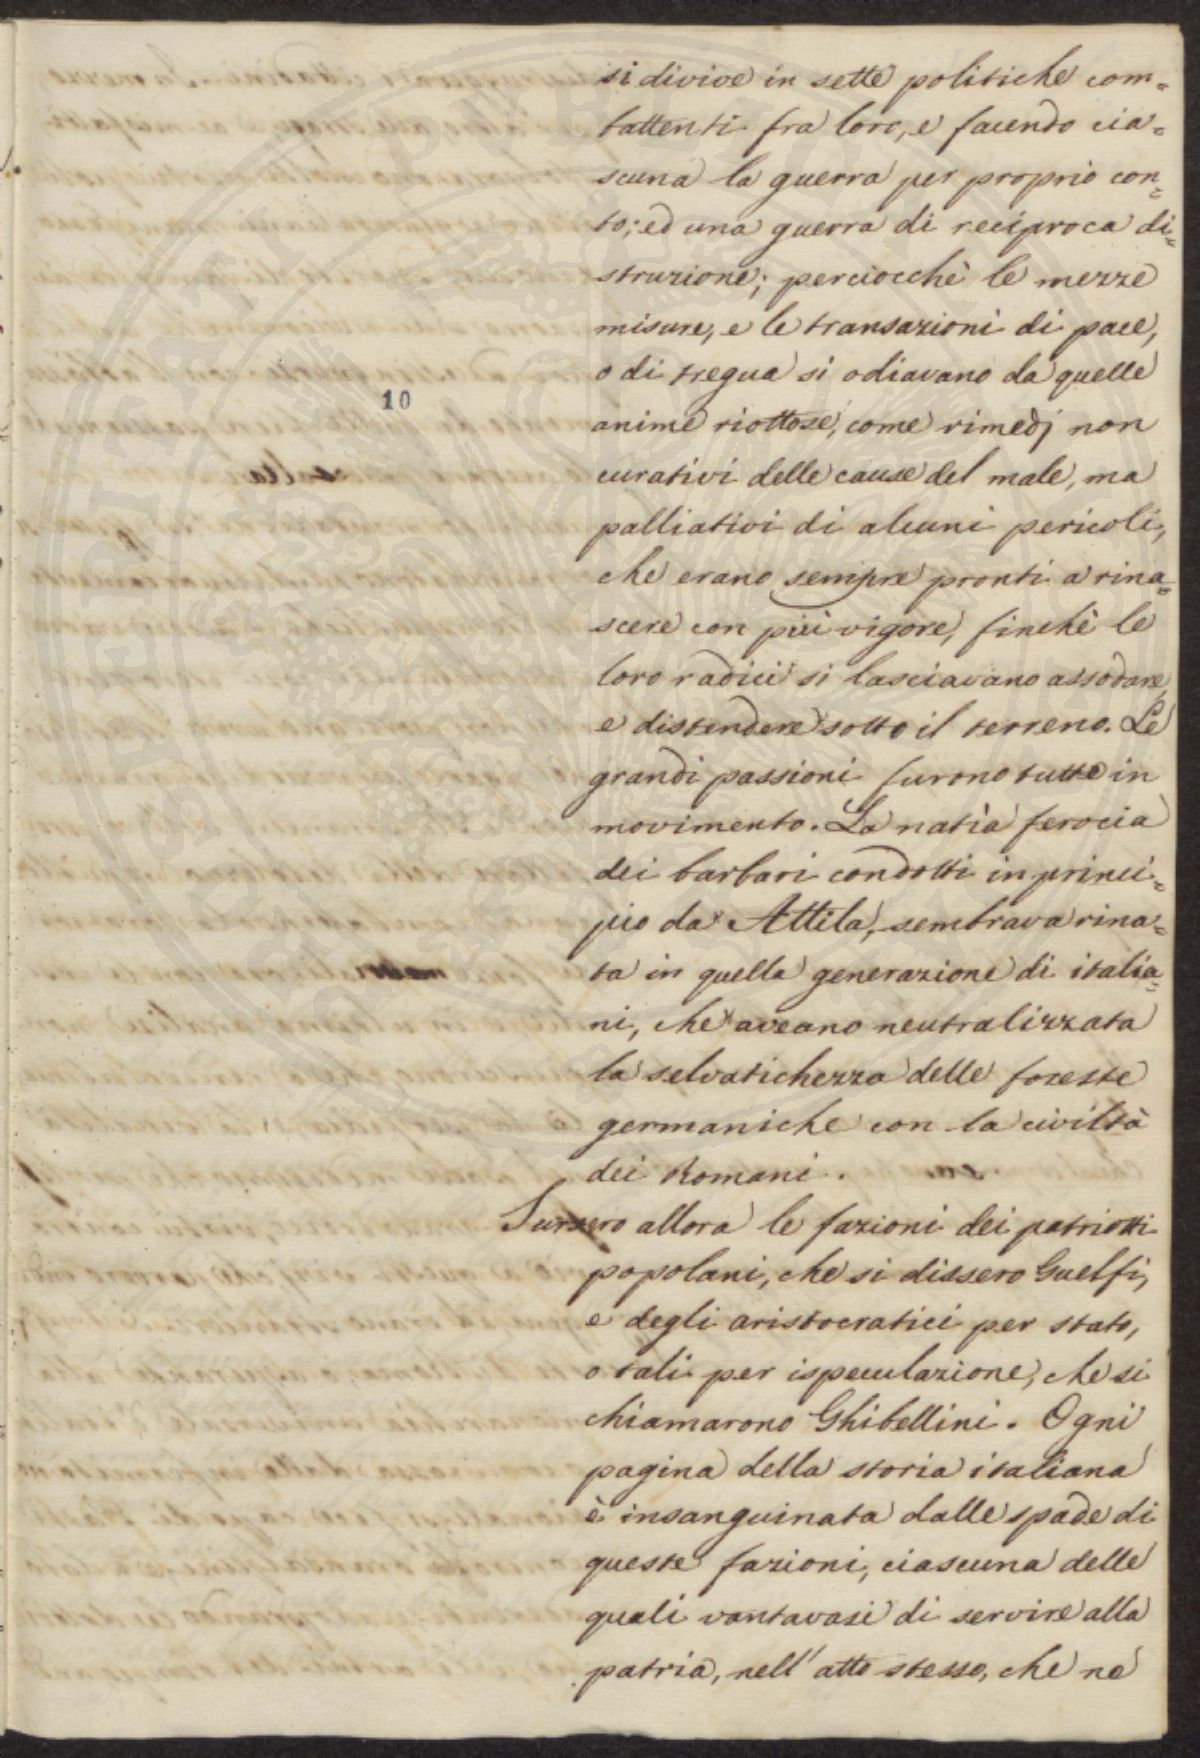 si divise in sette politiche com=
battenti fra loro, e facendo cia=
scuna la guerra per proprio con=
to; ed una guerra di reciproca di=
struzione; perciocchè le mezze
misure, e le transazioni di pace,
o di tregua si odiavano da quelle
10
anime riottose, come rimedj non
curativi delle cause del male, ma
palliativi di alcuni pericoli,
che erano sempre pronti a rina=
scere con più vigore, finchè le
loro radici si lasciavano assodare,
e distendere sotto il terreno. Le
grandi passioni furono tutte in
movimento. La natìa ferocia
dei barbari condotti in princi=
pio da Attila, sembrava rina=
ta in quella generazione di italia=
ni, che aveano neutralizzata
la selvatichezza delle foreste
germaniche con la civiltà
dei Romani.
Sursero allora le fazioni dei patriotti
popolani, che si dissero Guelfi,
e degli aristocratici per stato,
o tali per ispeculazione, che si
chiamarono Ghibellini. Ogni
pagina della storia italiana
è insanguinata dalle spade di
queste fazioni, ciascuna delle
quali vantavasi di servire alla
patria, nell'atto stesso, che ne